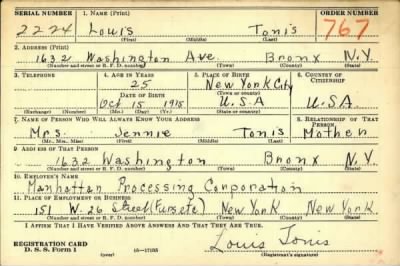 SERIAL NUMBER 1. NAME (Print) ORDER NUMBER
2224 Louis Tonis 767
(First) (Middle) (Last)
2. ADDRESS (Print)
1632 Washington Ave. Bronx N.Y.
(Number and street or R. F. D. number) (Town) (County) (State)
3. TELEPHONE 4. AGE IN YEARS 5. PLACE OF BIRTH 6. COUNTRY OF CITIZENSHIP
25 New York City
DATE OF BIRTH (Town or county)
Oct 15 1915 U.S.A U.S.A.
(Exchange) (Number) (Mo.) (Day) (Yr.) (State or country)
7. NAME OF PERSON WHO WILL ALWAYS KNOW YOUR ADDRESS 8. RELATIONSHIP OF THAT PERSON
Mrs. Jennie Tonis Mother
(Mr., Mrs., Miss) (First) (Middle) (Last)
9. ADDRESS OF THAT PERSON
1632 Washington Bronx N.Y.
(Number and street or R. F. D. number) (Town) (County) (State)
10. EMPLOYER'S NAME
Manhattan Processing Corporation
11. PLACE OF EMPLOYMENT OR BUSINESS
151 W. 26 Street New York New York
(Number and street or R. F. D. number) (Town) (County) (State)
I AFFIRM THAT I HAVE VERIFIED ABOVE ANSWERS AND THAT THEY ARE TRUE.
Louis Tonis
REGISTRATION CARD
D. S. S. Form 1 (over) (Registrant's signature)